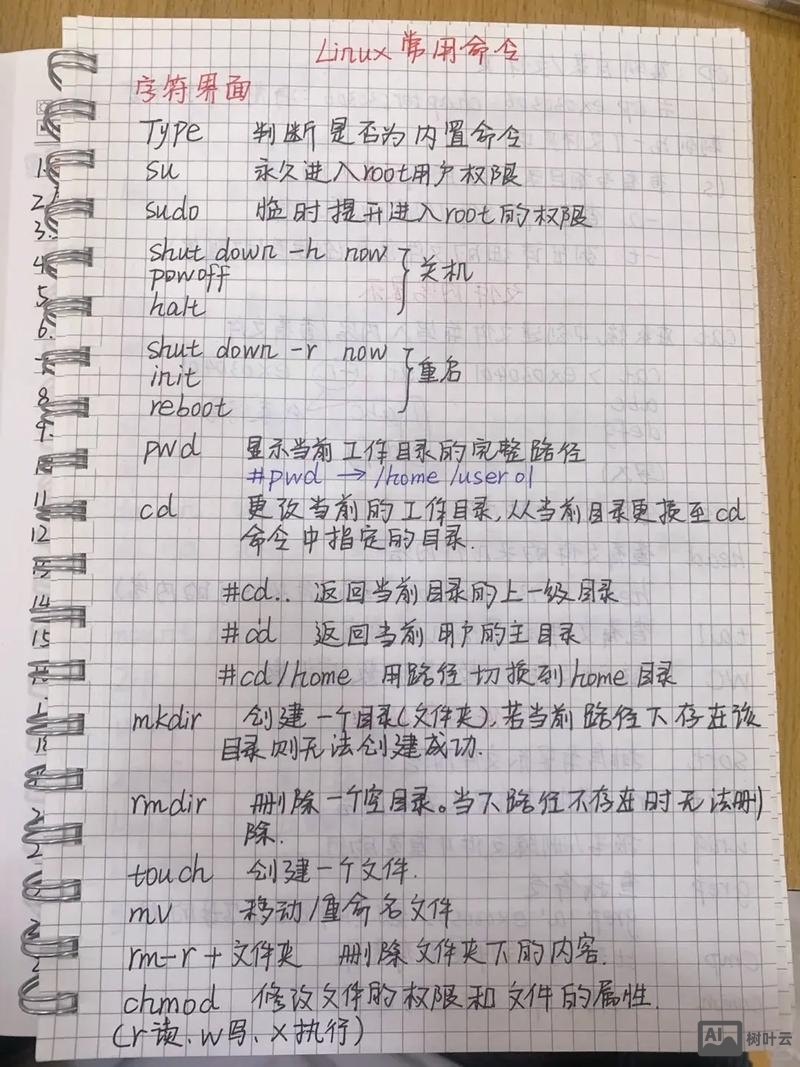 Linux 常用命令
字符界面
Type 判断是否为内置命令
su 永久进入root用户权限
sudo 临时提升进入root的权限
shut down -h now
powoff 关机
halt
shut down -r now
init 重名
reboot
pwd 显示当前工作目录的完整路径
#pwd → /home/user01
cd 更改当前的工作目录,从当前目录更换至cd
命令中指定的目录.
#cd.. 返回当前目录的上一级目录
#cd 返回当前用户的主目录
#cd/home 用路径切换到home目录
mkdir 创建一个目录(文件夹),若当前路径下存在该
目录则无法创建成功.
rmdir 删除一个空目录。当下路径不存在时无法删
除.
touch 创建一个文件.
mv 移动/重命名文件
rm-r+文件夹 删除文件夹下的内容.
chmod 修改文件的权限和文件的属性.
(r读、w写、x执行)
AI 树叶云